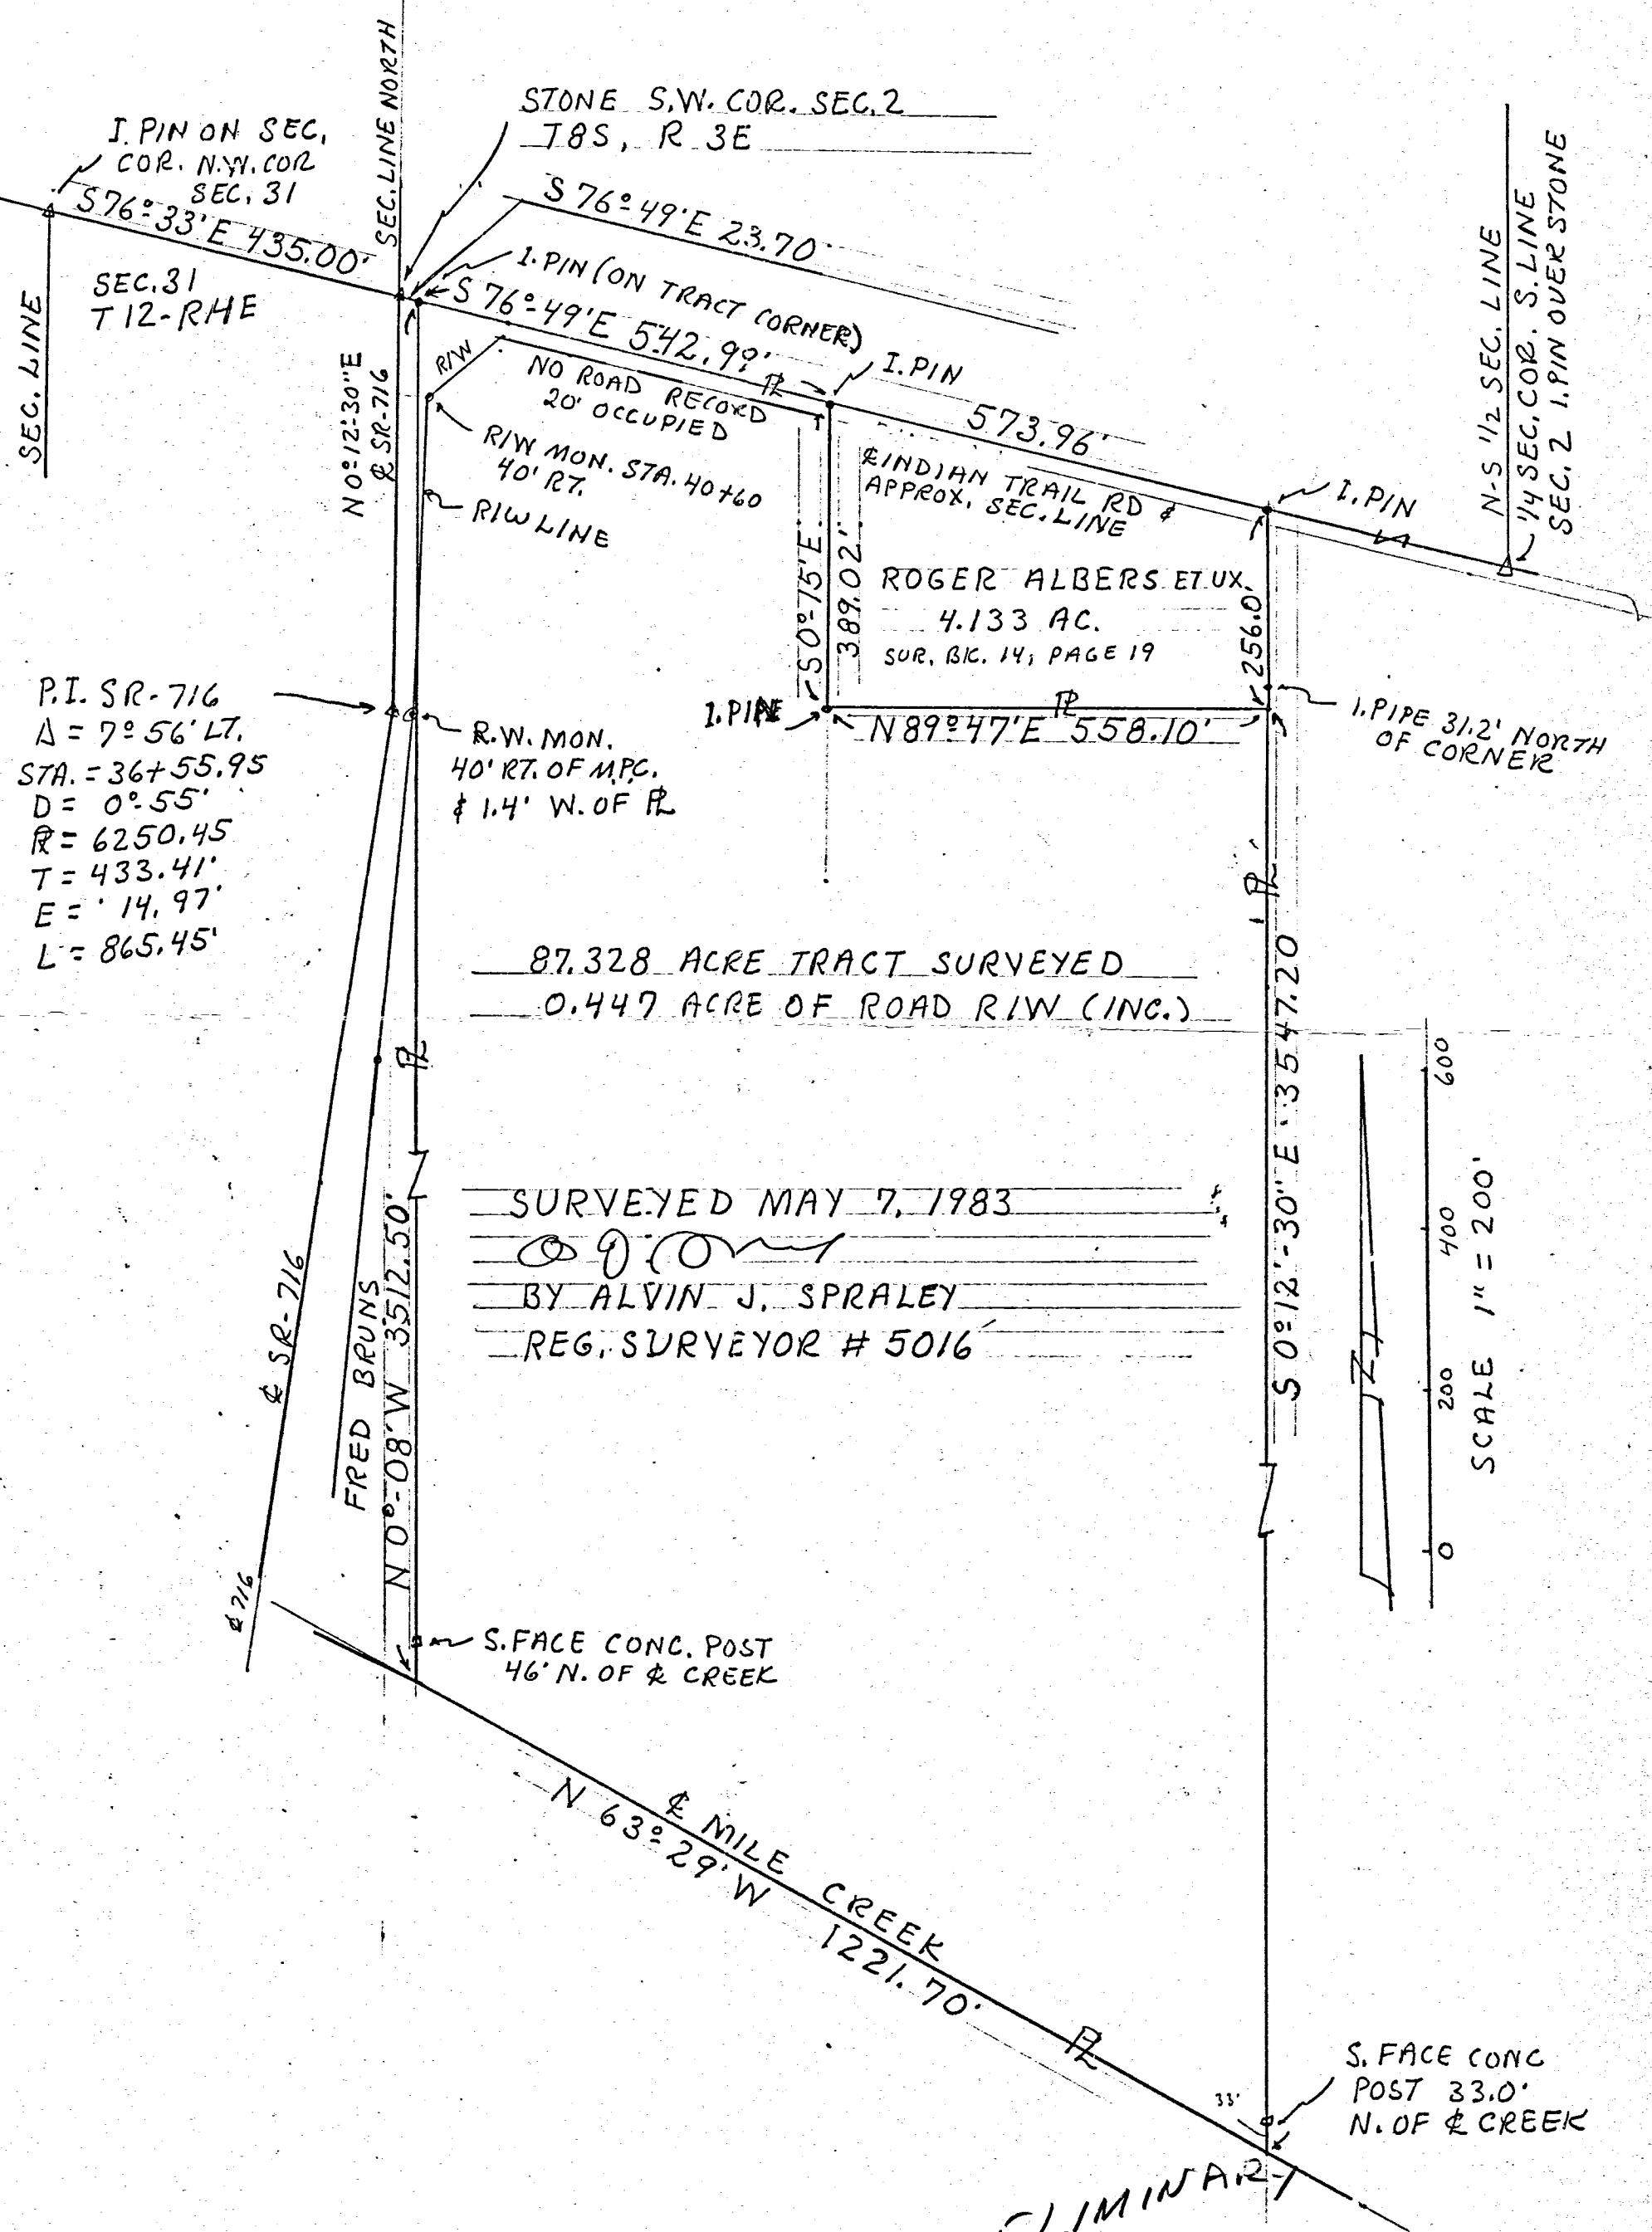 SEC. LINE NORTH
STONE S.W. COR. SEC. 2
T8S, R 3E
I. PIN ON SEC.
COR. N.W. COR
SEC. 31
S 76°-33' E 435.00'
SEC. 31
T 12-R4E
SEC. LINE
S 76°-49' E 23.70'
I. PIN (ON TRACT CORNER)
S 76°-49' E 542.99'
I. PIN
573.96'
I. PIN
N-S 1/2 SEC. LINE
1/4 SEC. COR. S. LINE
SEC. 2 I. PIN OVER STONE
R/W
NO ROAD RECORD
20' OCCUPIED
N 0°-12'-30" E
℄ SR-716
R/W MON. STA. 40+60
40' RT.
R/W LINE
℄ INDIAN TRAIL RD &
APPROX. SEC. LINE
S 0°-15' E
389.02'
ROGER ALBERS ET UX.
4.133 AC.
SUR. BK. 14, PAGE 19
256.0'
I. PIN
N 89°-47' E 558.10'
I. PIPE 31.2' NORTH
OF CORNER
P.I. SR-716
Δ = 7° 56' LT.
STA. = 36+55.95
D = 0°-55'
R = 6250.45
T = 433.41'
E = 14.97'
L = 865.45'
R.W. MON.
40' RT. OF M.P.C.
& 1.4' W. OF PL
PL
PL
PL
PL
87.328 ACRE TRACT SURVEYED
0.447 ACRE OF ROAD R/W (INC.)
S 0°-12'-30" E 3547.20
SURVEYED MAY 7, 1983
BY ALVIN J. SPRALEY
REG. SURVEYOR # 5016
℄ SR-716
FRED BRUNS
N 0°-08' W 3512.50'
600
400
200
0
SCALE 1" = 200'
N
℄ 716
S. FACE CONC. POST
46' N. OF ℄ CREEK
℄ MILE CREEK
N 63°-29' W 1221.70'
PL
33'
S. FACE CONC
POST 33.0'
N. OF ℄ CREEK
LIMINARY